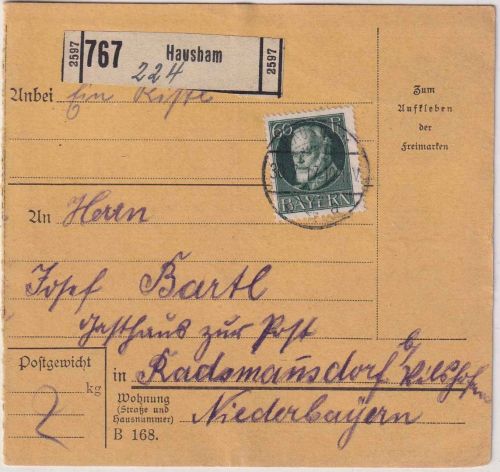 2597
767 Hausham
224
2597
Anbei Ein Kiste
Zum
Aufkleben
der
Freimarken
60 Pf
BAYERN
An Herrn
Josef Bartl
Gasthaus zur Post
in Radsmansdorf b/
Vilshofen
Niederbayern
Postgewicht
kg
2
Wohnung
(Straße und
Hausnummer)
B 168.